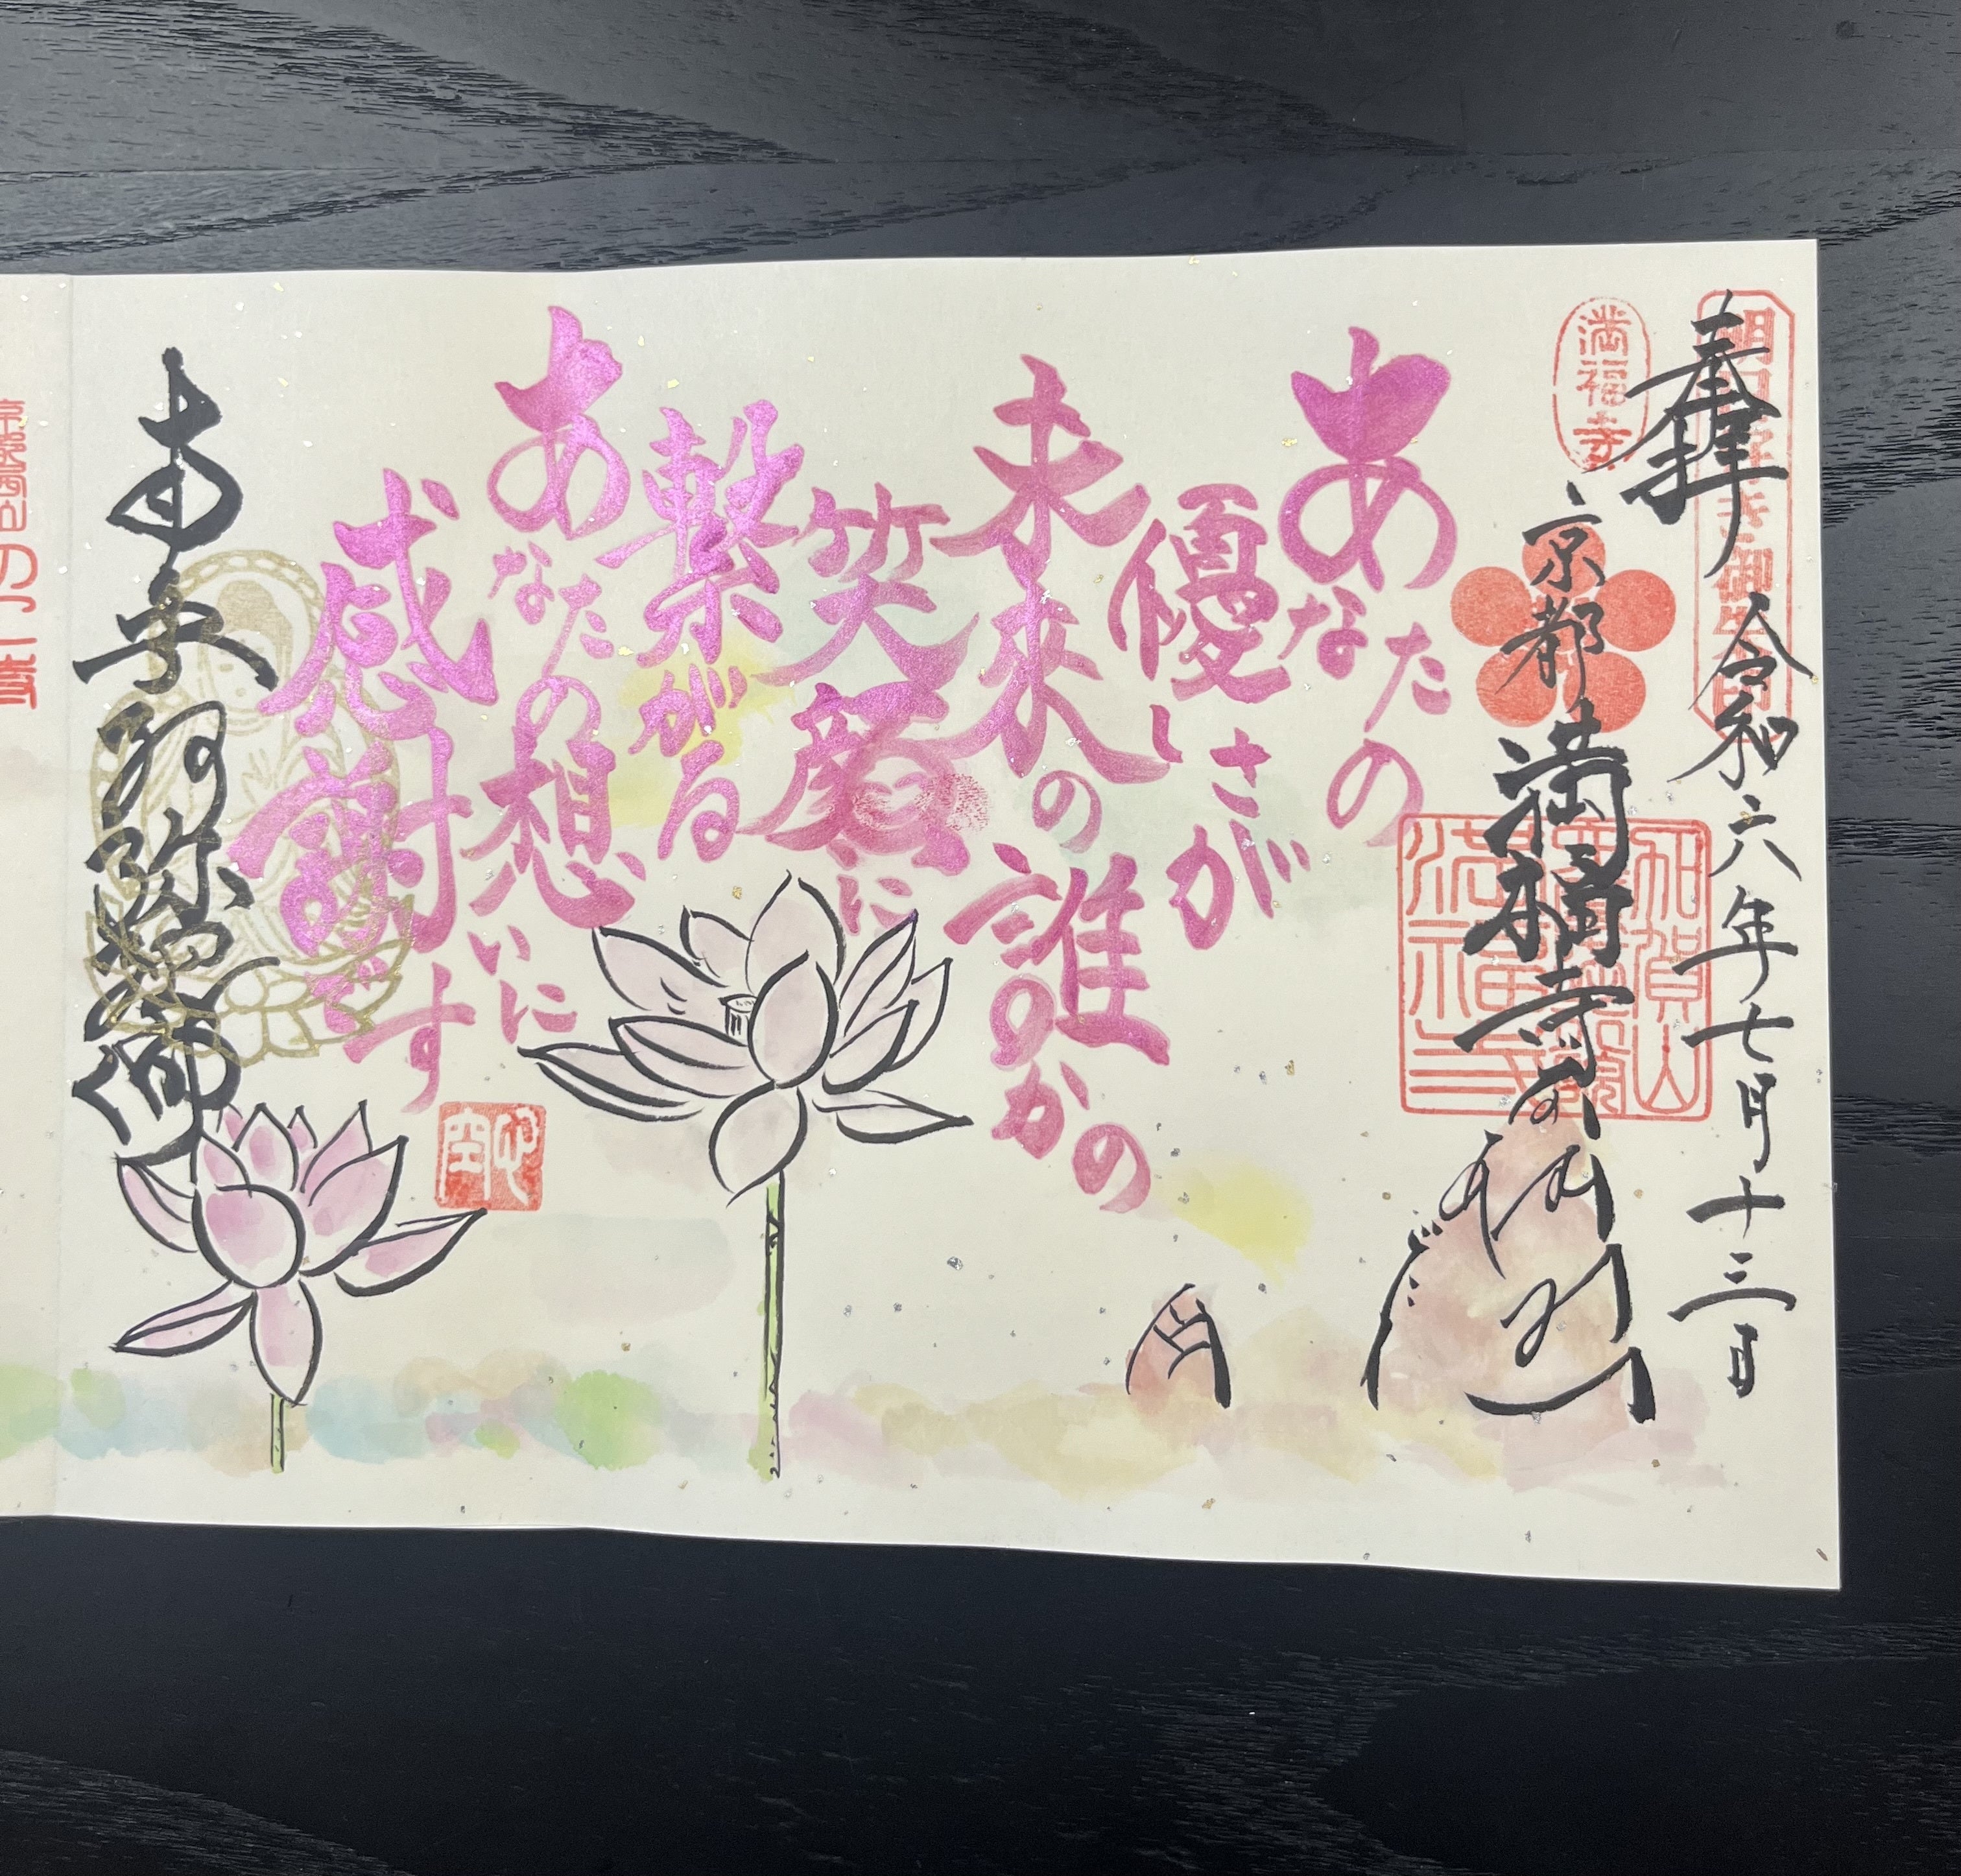 奉拝
令和六年七月十三日
満福寺
京都
満福寺
あなたの
優しさが
未来の
誰かの
笑顔に
繋がる
あなたの
想いに
感謝です
心空
南無阿弥陀佛